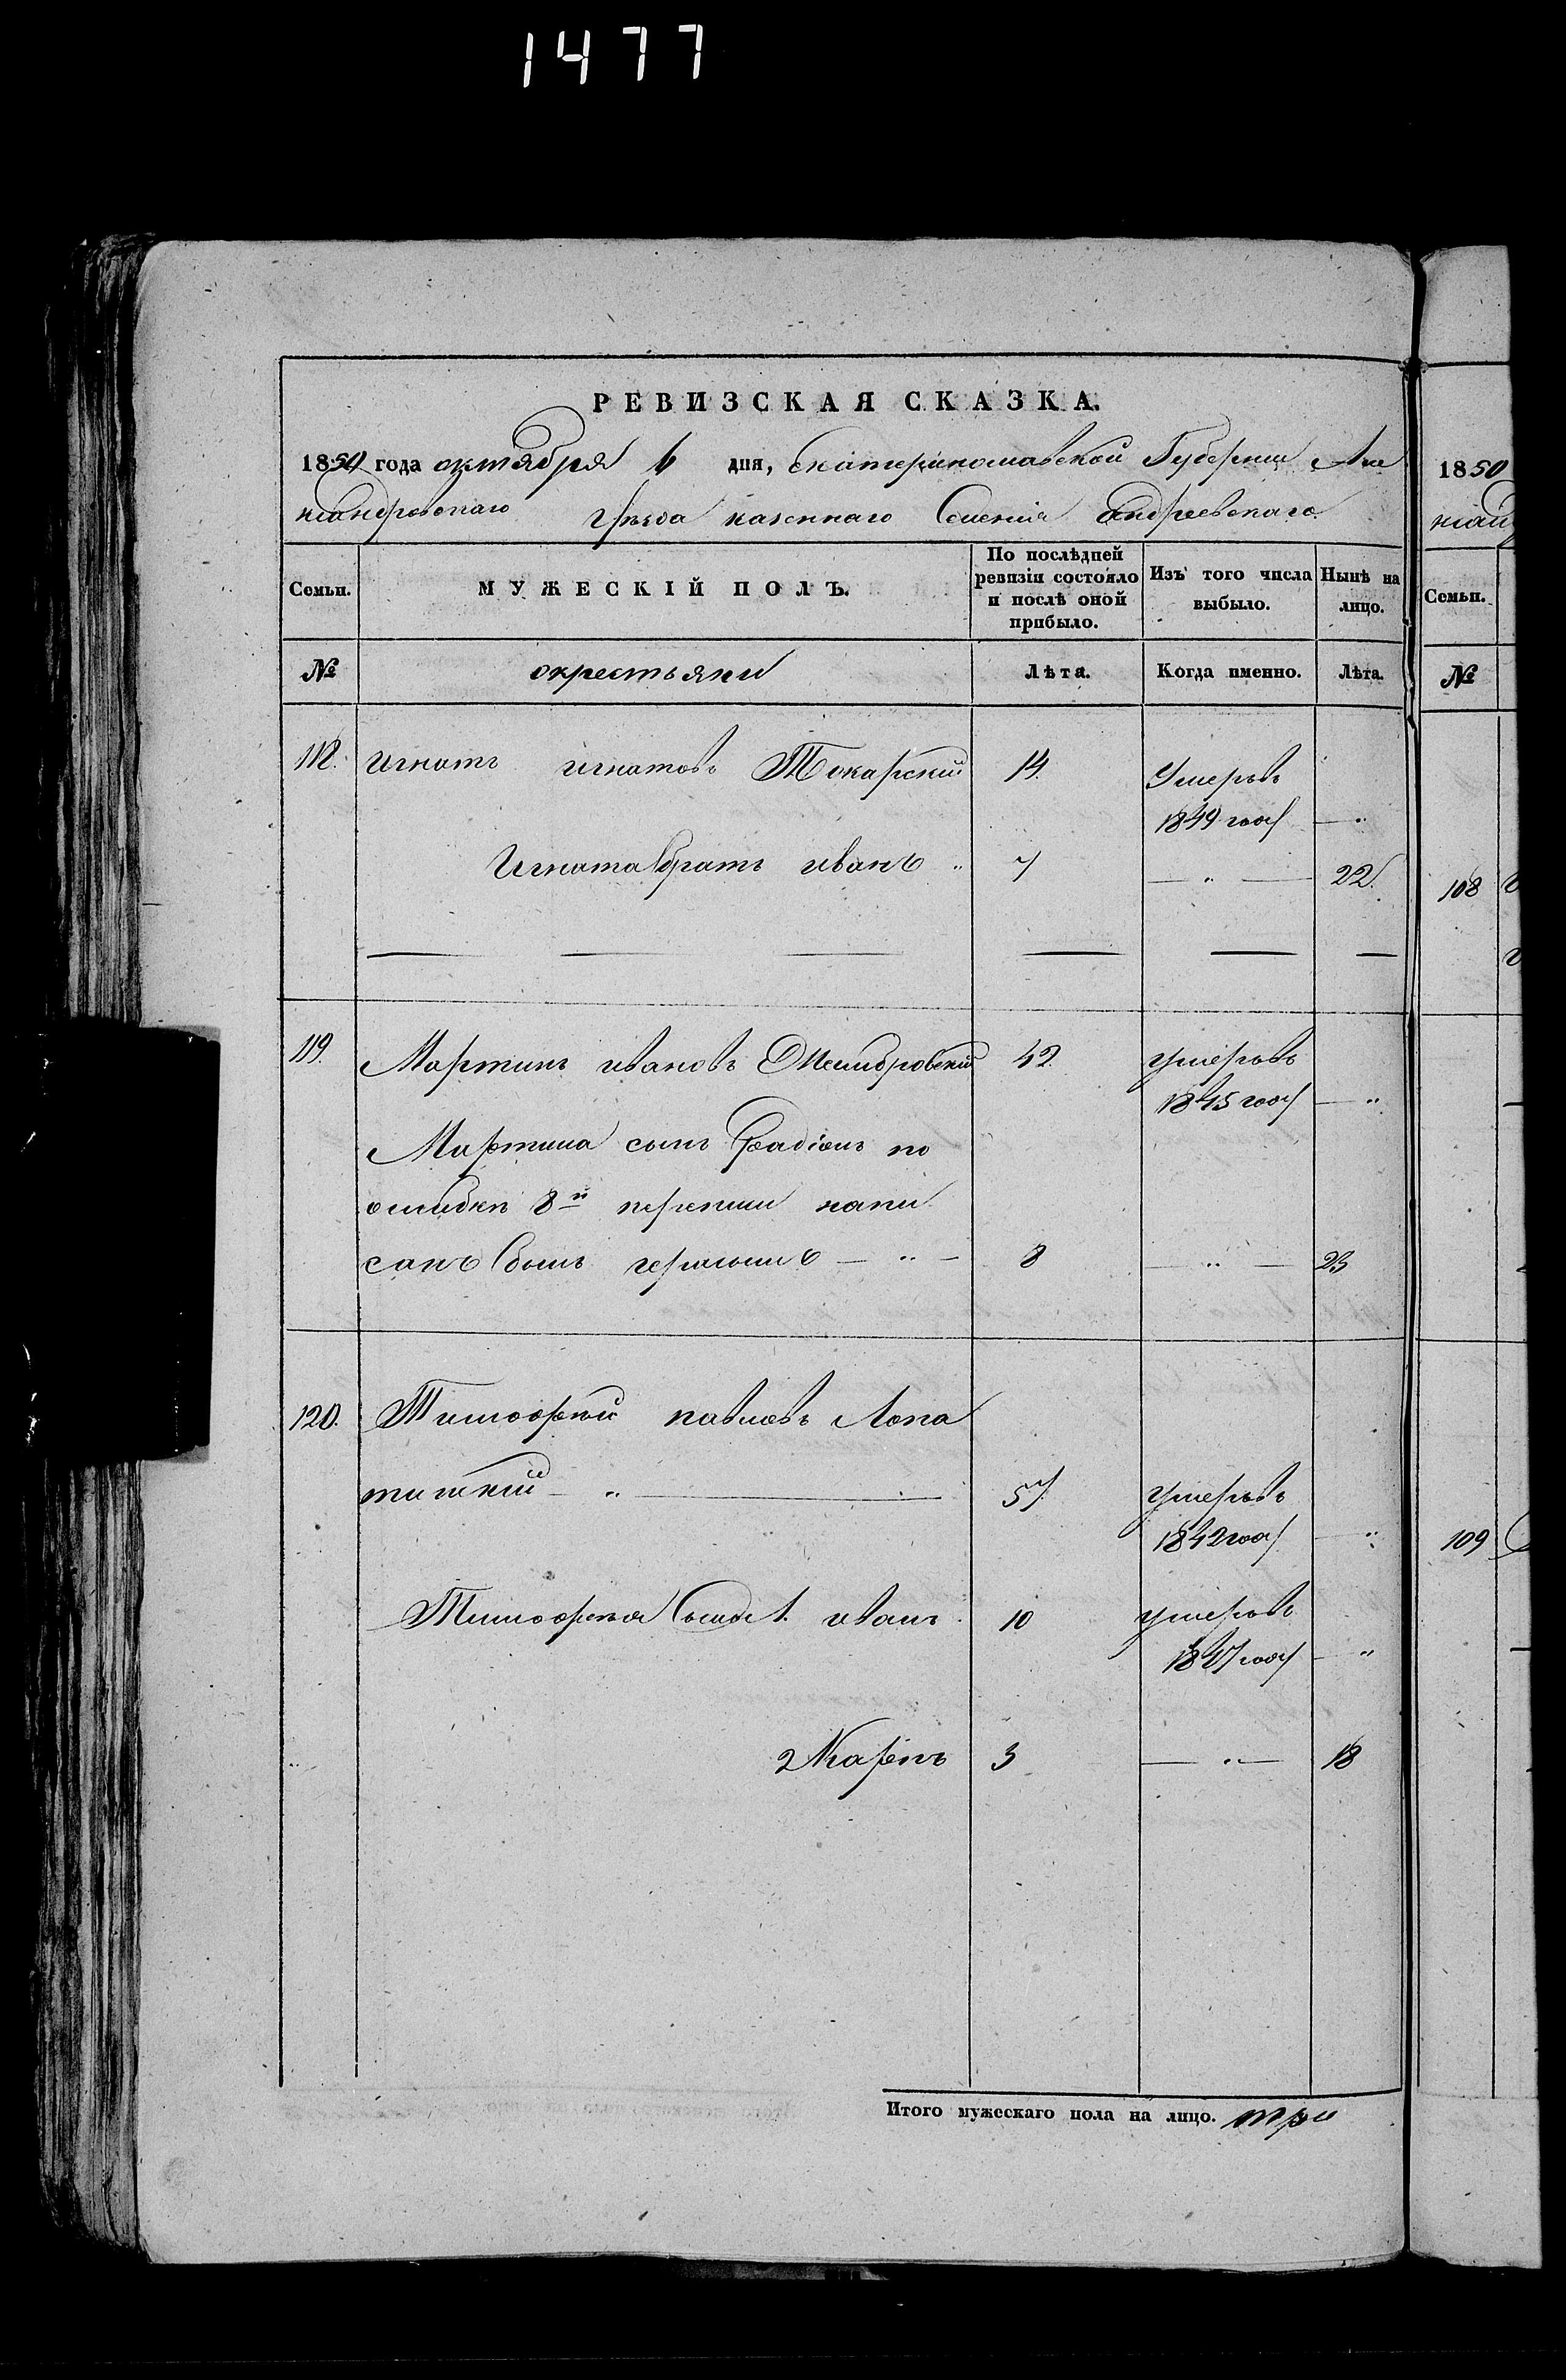 1477
РЕВИЗСКАЯ СКАЗКА.
1850 года октября 6 дня, Екатеринославской Губернии Але
ксандровскаго Уѣзда казеннаго Селенія Андреевскаго
Семьи.
МУЖЕСКІЙ ПОЛЪ.
По послѣдней ревизіи состояло и послѣ оной прибыло.
Изъ того числа выбыло.
Нынѣ на лицо.
№ окрестьяни Лѣта. Когда именно. Лѣта.
118. Игнатъ игнатовъ Токарский 14. Умеръвъ
1849 году — "
Игната братъ иванъ " 7 — " — 22.
119. Мартинъ ивановъ 42. умеръвъ
1845 году — "
Мартина сынъ Радіонъ по
ошибкѣ 8й переписи напи
санъ былъ — " — 8 — " — 23
120. Тимофѣй павловъ Лопа
тицкій — " — 57. умеръвъ
1842 году — "
Тимофѣя сыны 1. иванъ 10 умеръвъ
1847 году — "
2 Карпъ 3 — " — 18
Итого мужескаго пола на лицо. три
1850
ксанд
Семьи.
№
108
109